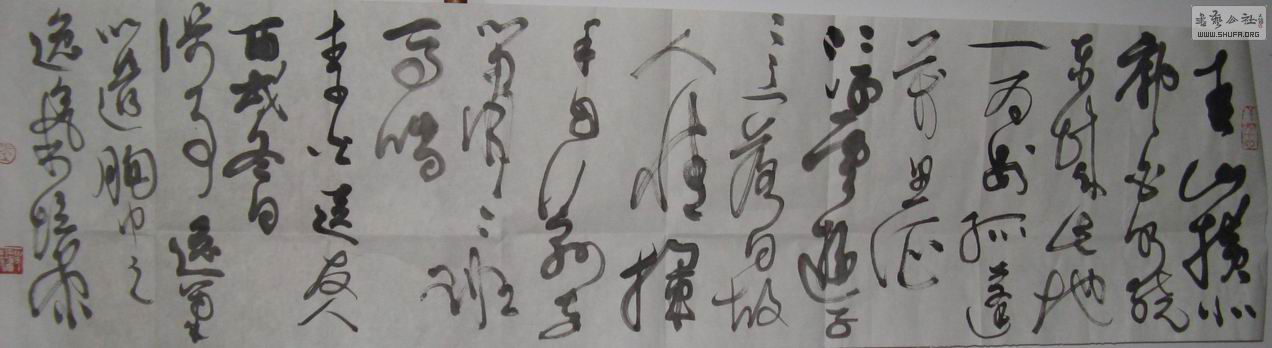 青山横北
郭白水绕
东城此地
一为别孤蓬
万里征
浮云游子
意落日故
人情挥
手自去
萧萧班
马鸣
李白送友人
丙戌冬日
笔
以胸中之
逸气
书艺公社
WWW.SHUFA.ORG